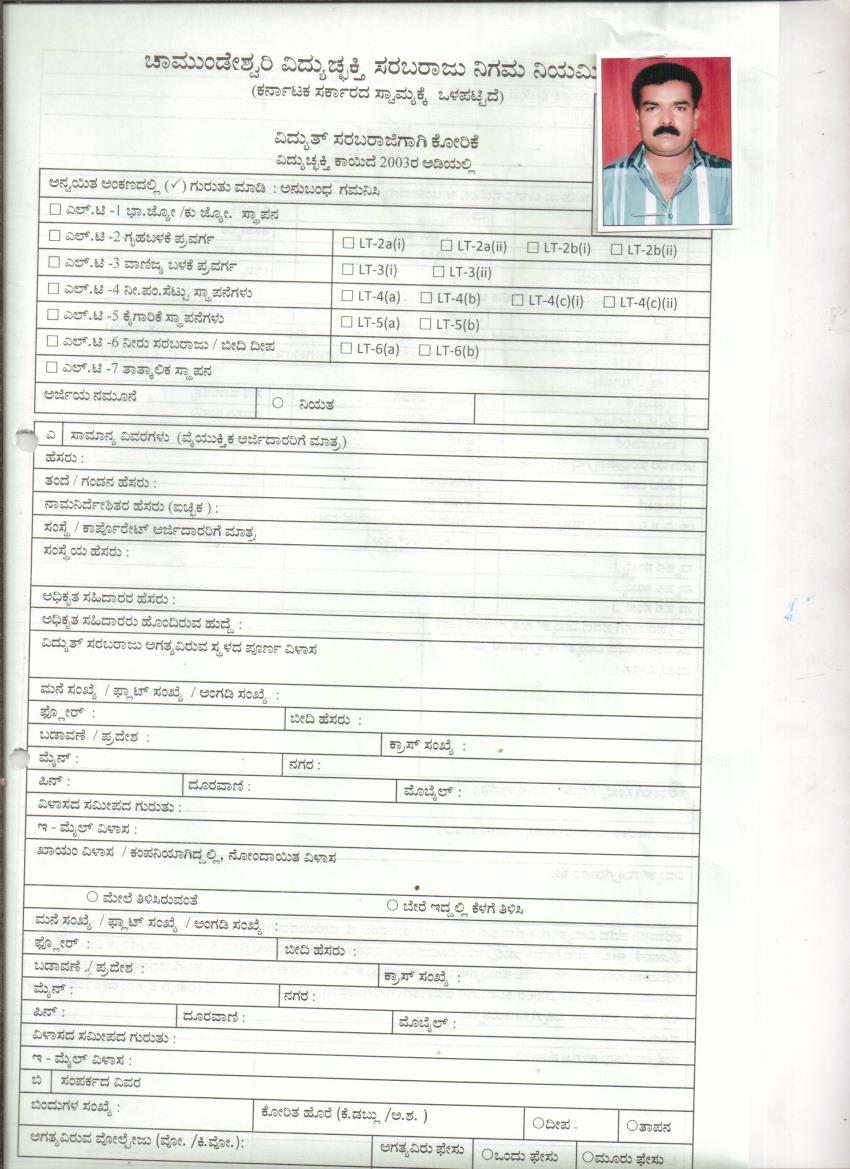 ಚಾಮುಂಡೇಶ್ವರಿ ವಿದ್ಯುಚ್ಛಕ್ತಿ ಸರಬರಾಜು ನಿಗಮ ನಿಯಮಿ
(ಕರ್ನಾಟಕ ಸರ್ಕಾರದ ಸ್ವಾಮ್ಯಕ್ಕೆ ಒಳಪಟ್ಟಿದೆ)
ವಿದ್ಯುತ್ ಸರಬರಾಜಿಗಾಗಿ ಕೋರಿಕೆ
ವಿದ್ಯುಚ್ಛಕ್ತಿ ಕಾಯಿದೆ 2003ರ ಅಡಿಯಲ್ಲಿ
ಅನ್ವಯಿತ ಅಂಕಣದಲ್ಲಿ (✓) ಗುರುತು ಮಾಡಿ : ಅನುಬಂಧ ಗಮನಿಸಿ
☐ ಎಲ್.ಟಿ -1 ಭಾ.ಜ್ಯೋ /ಕು ಜ್ಯೋ. ಸ್ಥಾಪನ
☐ ಎಲ್.ಟಿ -2 ಗೃಹಬಳಕೆ ಪ್ರವರ್ಗ ☐ LT-2a(i) ☐ LT-2a(ii) ☐ LT-2b(i) ☐ LT-2b(ii)
☐ ಎಲ್.ಟಿ -3 ವಾಣಿಜ್ಯ ಬಳಕೆ ಪ್ರವರ್ಗ ☐ LT-3(i) ☐ LT-3(ii)
☐ ಎಲ್.ಟಿ -4 ನೀ.ಪಂ.ಸೆಟ್ಟು ಸ್ಥಾಪನೆಗಳು ☐ LT-4(a) ☐ LT-4(b) ☐ LT-4(c)(i) ☐ LT-4(c)(ii)
☐ ಎಲ್.ಟಿ -5 ಕೈಗಾರಿಕೆ ಸ್ಥಾಪನೆಗಳು ☐ LT-5(a) ☐ LT-5(b)
☐ ಎಲ್.ಟಿ -6 ನೀರು ಸರಬರಾಜು / ಬೀದಿ ದೀಪ ☐ LT-6(a) ☐ LT-6(b)
☐ ಎಲ್.ಟಿ -7 ತಾತ್ಕಾಲಿಕ ಸ್ಥಾಪನ
ಅರ್ಜಿಯ ನಮೂನೆ ○ ನಿಯತ
ಎ ಸಾಮಾನ್ಯ ವಿವರಗಳು (ವೈಯುಕ್ತಿಕ ಅರ್ಜಿದಾರರಿಗೆ ಮಾತ್ರ)
ಹೆಸರು :
ತಂದೆ / ಗಂಡನ ಹೆಸರು :
ನಾಮನಿರ್ದೇಶಿತರ ಹೆಸರು (ಐಚ್ಛಿಕ ) :
ಸಂಸ್ಥೆ / ಕಾರ್ಪೊರೇಟ್ ಅರ್ಜಿದಾರರಿಗೆ ಮಾತ್ರ
ಸಂಸ್ಥೆಯ ಹೆಸರು :
ಅಧಿಕೃತ ಸಹಿದಾರರ ಹೆಸರು :
ಅಧಿಕೃತ ಸಹಿದಾರರು ಹೊಂದಿರುವ ಹುದ್ದೆ :
ವಿದ್ಯುತ್ ಸರಬರಾಜು ಅಗತ್ಯವಿರುವ ಸ್ಥಳದ ಪೂರ್ಣ ವಿಳಾಸ
ಮನೆ ಸಂಖ್ಯೆ / ಫ್ಲಾಟ್ ಸಂಖ್ಯೆ / ಅಂಗಡಿ ಸಂಖ್ಯೆ :
ಫ್ಲೋರ್ : ಬೀದಿ ಹೆಸರು :
ಬಡಾವಣೆ / ಪ್ರದೇಶ : ಕ್ರಾಸ್ ಸಂಖ್ಯೆ :
ಮೈನ್ : ನಗರ :
ಪಿನ್ : ದೂರವಾಣಿ : ಮೊಬೈಲ್ :
ವಿಳಾಸದ ಸಮೀಪದ ಗುರುತು :
ಇ - ಮೈಲ್ ವಿಳಾಸ :
ಖಾಯಂ ವಿಳಾಸ / ಕಂಪನಿಯಾಗಿದ್ದಲ್ಲಿ, ನೋಂದಾಯಿತ ವಿಳಾಸ
○ ಮೇಲೆ ತಿಳಿಸಿರುವಂತೆ ○ ಬೇರೆ ಇದ್ದಲ್ಲಿ ಕೆಳಗೆ ತಿಳಿಸಿ
ಮನೆ ಸಂಖ್ಯೆ / ಫ್ಲಾಟ್ ಸಂಖ್ಯೆ / ಅಂಗಡಿ ಸಂಖ್ಯೆ :
ಫ್ಲೋರ್ : ಬೀದಿ ಹೆಸರು :
ಬಡಾವಣೆ / ಪ್ರದೇಶ : ಕ್ರಾಸ್ ಸಂಖ್ಯೆ :
ಮೈನ್ : ನಗರ :
ಪಿನ್ : ದೂರವಾಣಿ : ಮೊಬೈಲ್ :
ವಿಳಾಸದ ಸಮೀಪದ ಗುರುತು :
ಇ - ಮೈಲ್ ವಿಳಾಸ :
ಬಿ ಸಂಪರ್ಕದ ವಿವರ
ಬಿಂದುಗಳ ಸಂಖ್ಯೆ : ಕೋರಿತ ಹೊರೆ (ಕೆ.ಡಬ್ಲು /ಅ.ಶ. ) ○ದೀಪ ○ತಾಪನ
ಅಗತ್ಯವಿರುವ ವೋಲ್ಟೇಜು (ವೋ. /ಕಿ.ವೋ.): ಅಗತ್ಯವಿರು ಫೇಸು ○ಒಂದು ಫೇಸು ○ಮೂರು ಫೇಸು